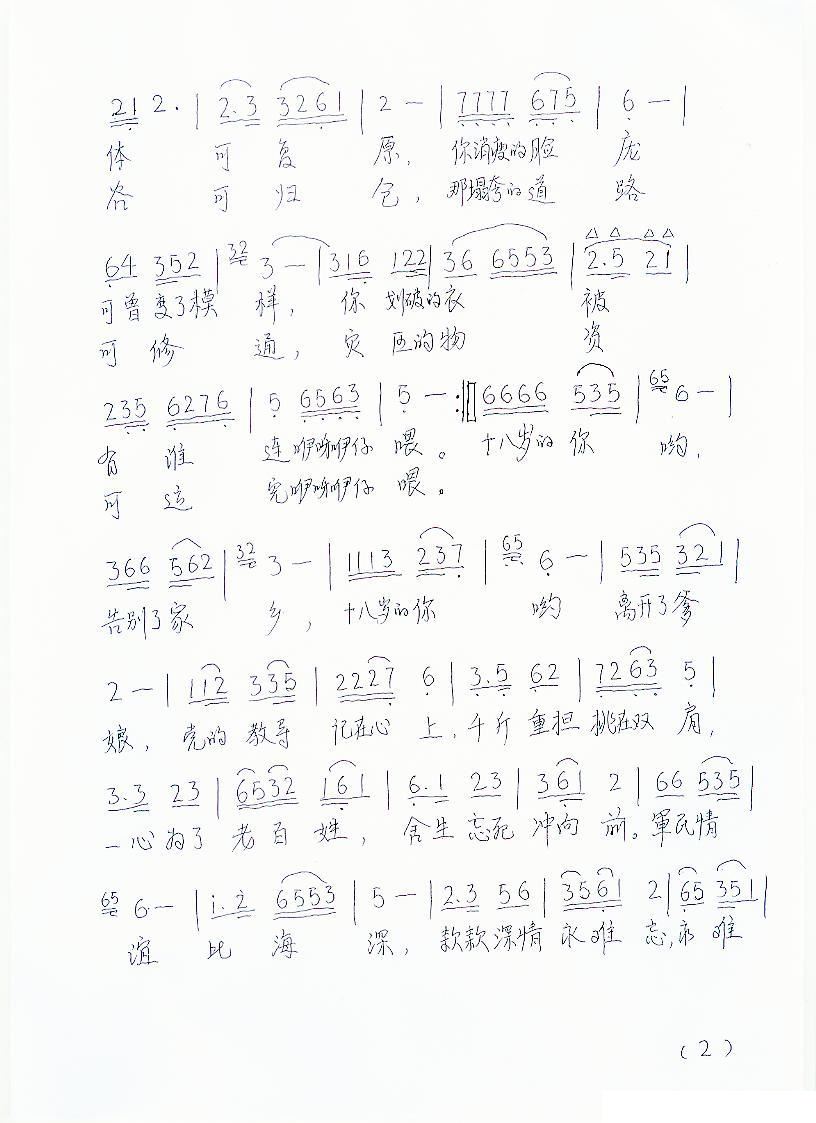 21 2· | 2.3 3261 | 2 — | 7777 675 | 6 — |
体 可 复 原, 你消瘦的脸 庞
谷 可 归 仓, 那塌垮的道 路
64 352 | 32 3 — | 316 122 | 36 6553 | 2.5 21 |
可曾变了模 样, 你 划破的衣 被
可 修 通, 灾 区的物 资
235 6276 | 5 6563 | 5 — :‖ 6666 535 | 65 6 — |
有 谁 连咿呀咿仔 喂。 十八岁的 你 哟,
可 运 完咿呀咿仔 喂。
366 562 | 32 3 — | 1113 237 | 65 6 — | 535 321 |
告别了家 乡, 十八岁的你 哟 离开了爹
2 — | 112 335 | 2227 6 | 3.5 62 | 7263 5 |
娘, 党的 教导 记在心 上, 千斤 重担 挑在双 肩,
3.3 23 | 6532 161 | 6.1 23 | 361 2 | 66 535 |
一心为了 老百 姓, 舍生 忘死 冲向 前。軍民情
65 6 — | i.2 6553 | 5 — | 2.3 56 | 3561 2 | 65 351 |
谊 比 海 深, 款款深情 永难 忘,永 难
(2)